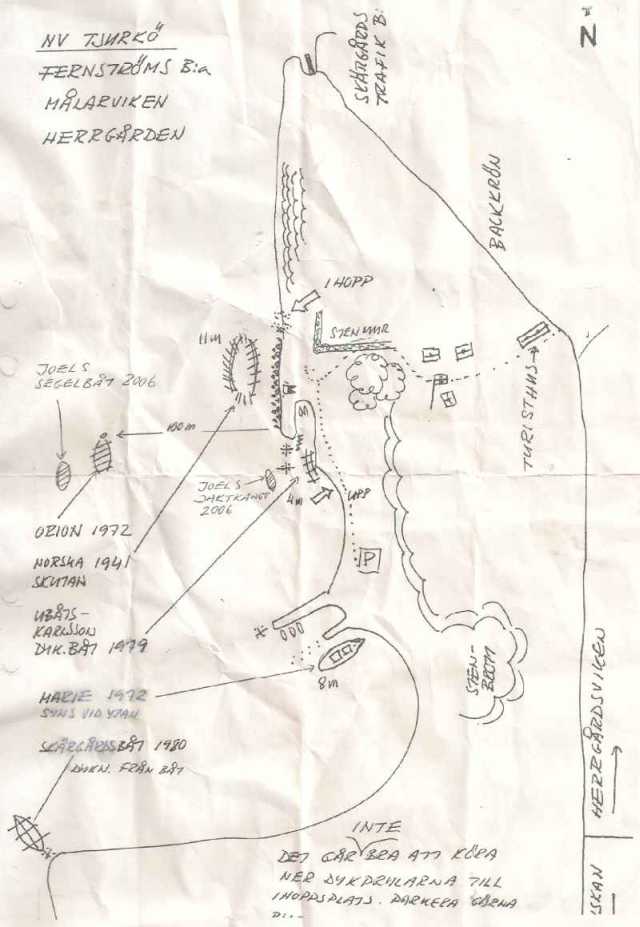 NV TJURKÖ
FERNSTRÖMS B:a
MÅLARVIKEN
HERRGÅRDEN
SKÄRGÅRDS
TRAFIK B:
N
BACKKRÖN
I HOPP
STENMUR
11m
JOELS
SEGELBÅT 2006
100m
TURISTHUS
JOELS
JAKTKANOT
2006
4m
UPP
P
ORION 1972
NORSKA 1941
SKUTAN
UBÅTS-
KARLSSON
DYK.BÅT 1979
MARIE 1972
SYNS VID YTAN
8m
STEN-
BROTT
SKÄRGÅRDSBÅT 1980
DYKN. FRÅN BÅT
HERRGÅRDSVIKEN
INTE
DET GÅR BRA ATT KÖRA
NER DYKPRYLARNA TILL
IHOPPSPLATS. PARKERA GÄRNA
SKAN